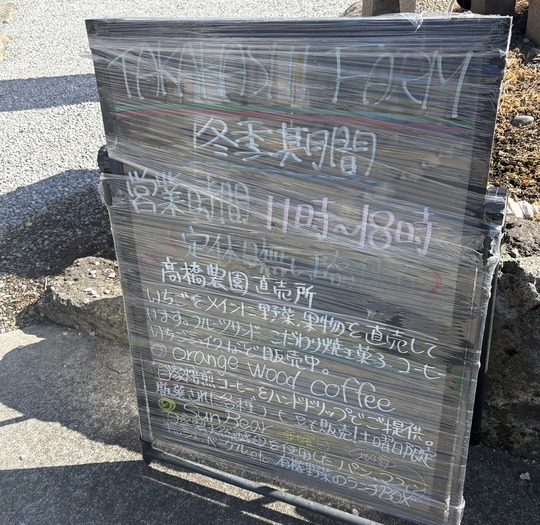 TAKAHASHI FORM
冬季期間
営業時間 11時〜18時
定休日無し
高橋農園直売所
いちごをメインに野菜、果物を直売して
います。フルーツサンド こだわり焼き菓子、コーヒー
いちごミルクなど販売中。
orange wood coffee
自家焙煎コーヒーをハンドドリップでご提供。
各種コーヒー豆も販売 土曜日限定
Sun Bear
を使用したパン
ベーグル etc 有機野菜のランチBOX